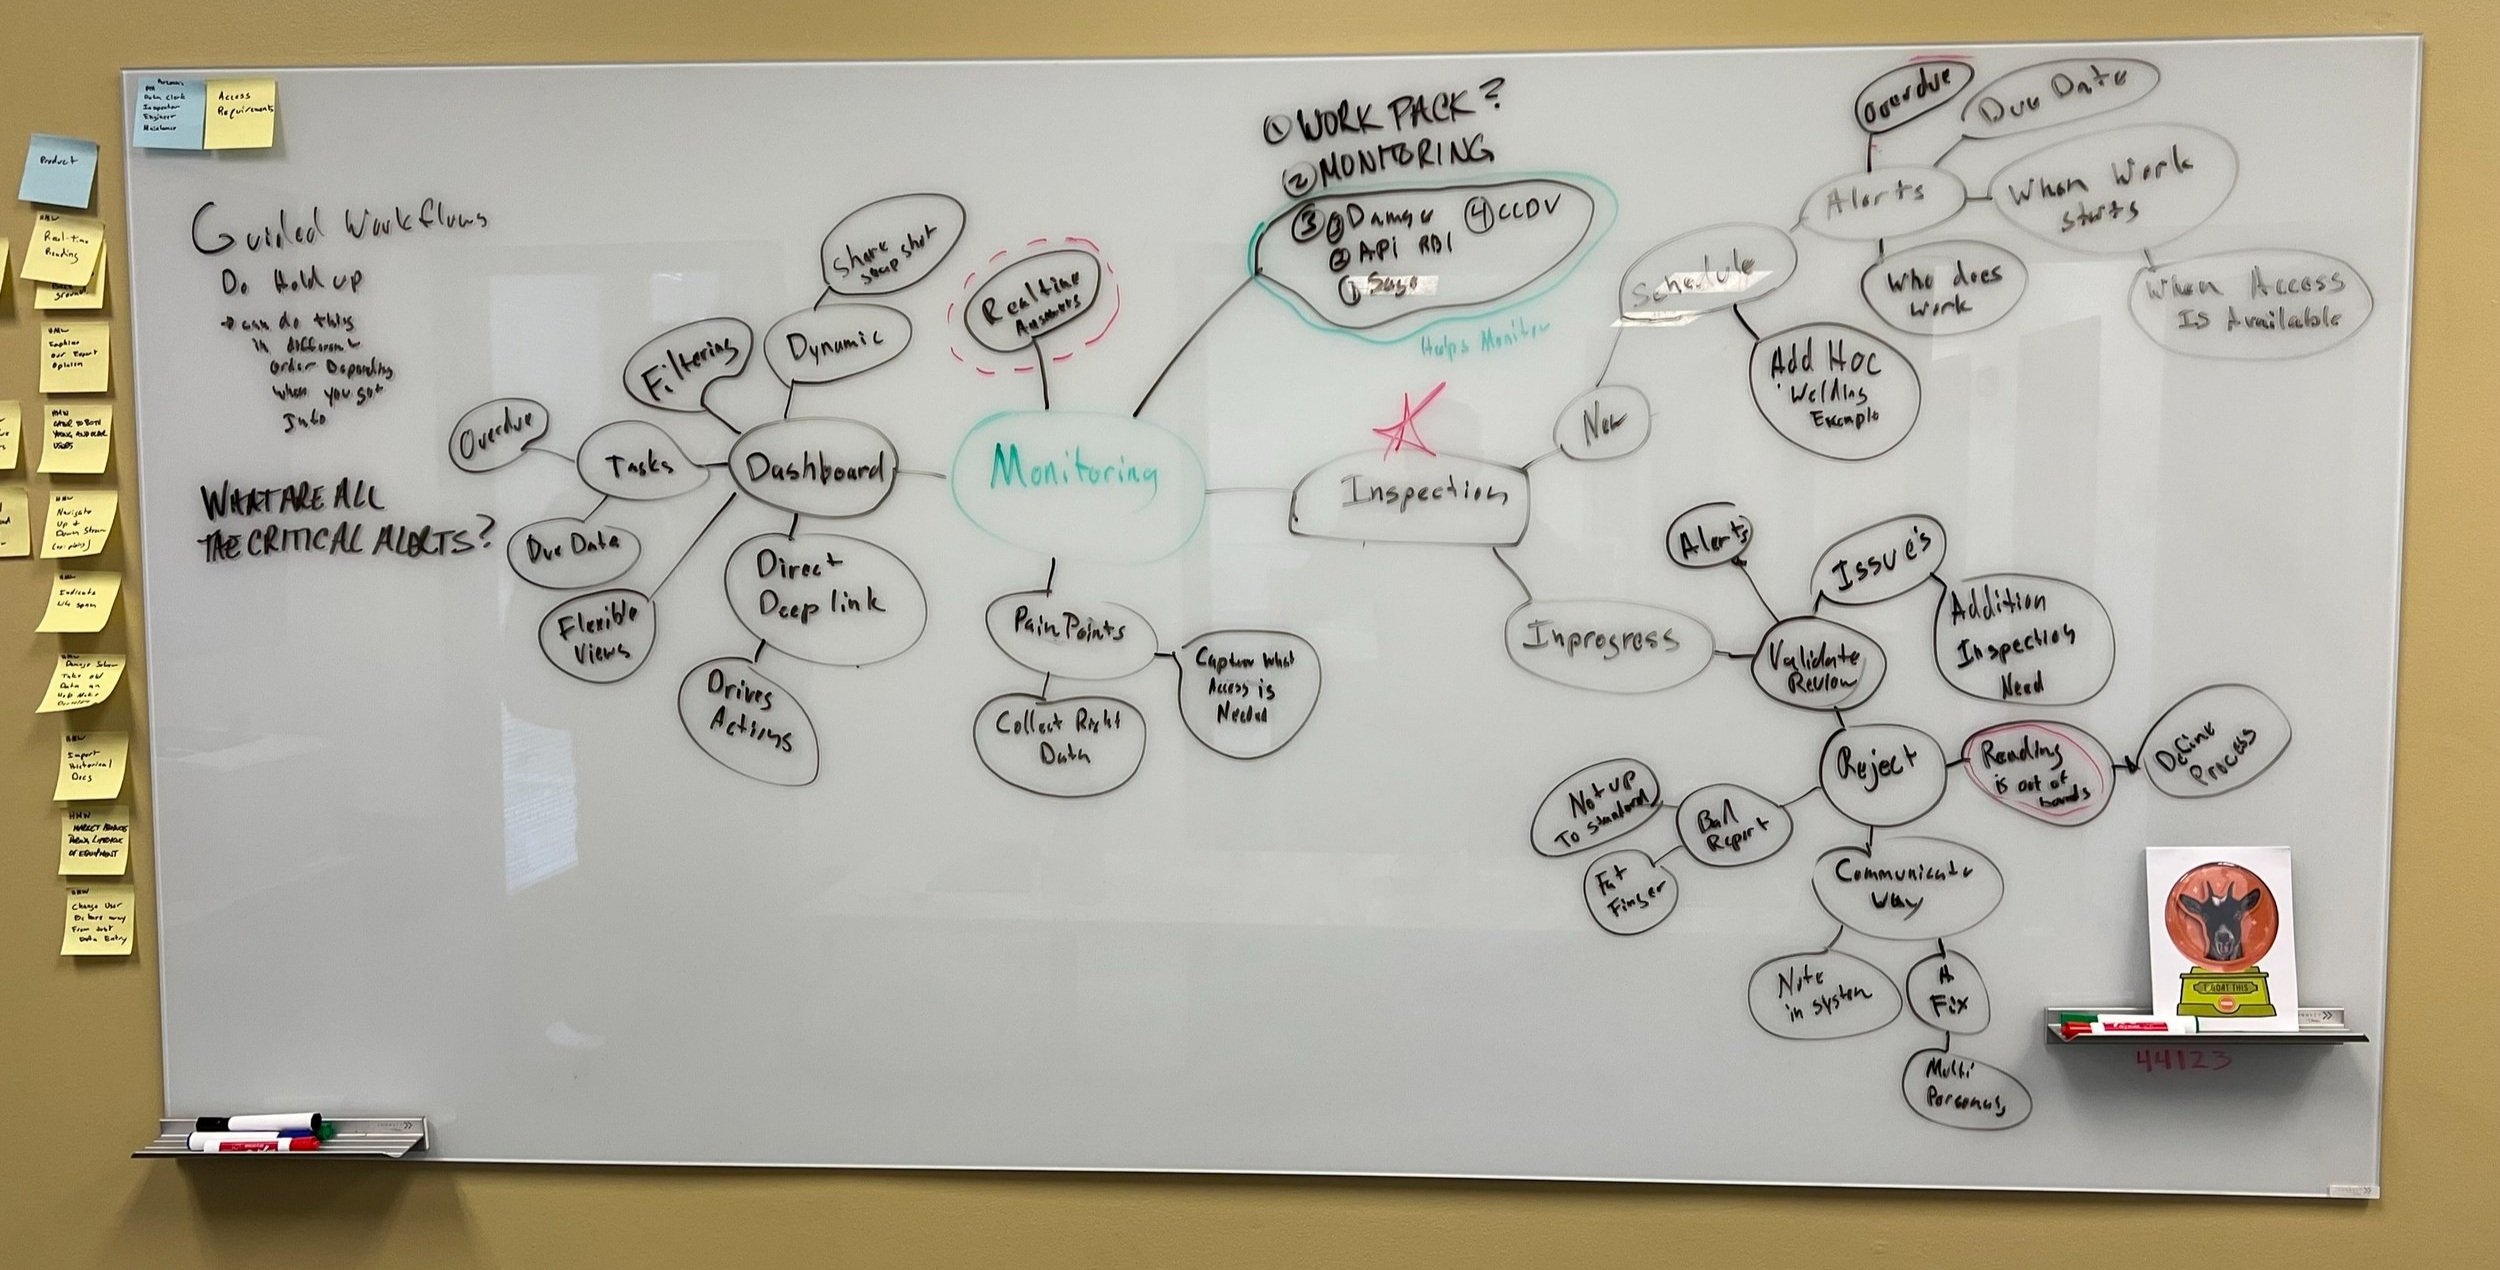 Data Clerk
Inspector
Engineer
Access
Requirements
Product
HMW
Real-time
Reading
HMW
Our Expert
Opinion
HMW
CATER TO BOTH
YOUNG AND OLDER
USERS
HMW
Navigate
Up &
Down Stream
HMW
Indicate
HMW
Take old
Data an
HMW
Import
Historical
Docs
HMW
MARKET
OF EQUIPMENT
HMW
Change User
From Just
Data Entry
Guided Workflows
Do Hold up
→ can do this
in different
order Depending
when you got
Info
WHAT ARE ALL
THE CRITICAL ALERTS?
Share
snapshot
Filtering
Dynamic
Overdue
Tasks
Dashboard
Due Data
Flexible
Views
Direct
Deep link
Drives
Actions
Realtime
Answers
Monitoring
Pain Points
Capture What
Access is
Needed
Collect Right
Data
① WORK PACK?
② MONITORING
③ ③ Damage ④ CCDV
② Api RBI
① Sage
Helps Monitor
Inspection
New
Schedule
Add Hoc
Welding
Example
Alerts
Overdue
Due Date
When Work
starts
Who does
work
When Access
Is Available
Inprogress
Validate
Review
Alerts
Issue's
Addition
Inspection
Need
Reject
Reading
is out of
bounds
Define
Process
Bad
Report
Not up
To Standard
Fat
Finger
Communicate
Why
Note
in system
A
Fix
Multi
Personas
I GOAT THIS
44123